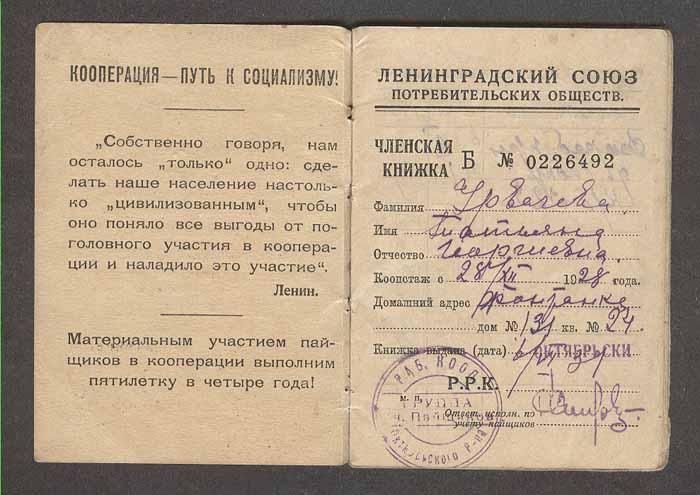 КООПЕРАЦИЯ—ПУТЬ К СОЦИАЛИЗМУ!
„Собственно говоря, нам
осталось „только“ одно: сде-
лать наше население настоль-
ко „цивилизованным“, чтобы
оно поняло все выгоды от по-
головного участия в коопера-
ции и наладило это участие“.
Ленин.
Материальным участием пай-
щиков в кооперации выполним
пятилетку в четыре года!
ЛЕНИНГРАДСКИЙ СОЮЗ
ПОТРЕБИТЕЛЬСКИХ ОБЩЕСТВ.
ЧЛЕНСКАЯ
КНИЖКА Б № 0226492
Фамилия
Имя Татьяна
Отчество Георгиевна.
Коопстаж с 28/XII 1928 года.
Домашний адрес Фонтанка
дом № кв. № 24.
Книжка выдана (дата) ОКТЯБРЬСКИ
Р.Р.К.
м. п.
Ответ. исполн. по
учету пайщиков
РАБ. КООП.
ГРУППА
Октябрьского Р-на